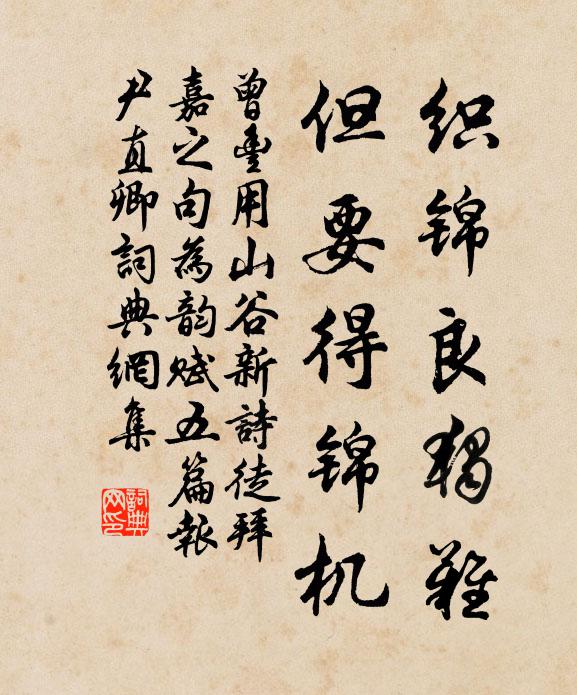 织锦良独難
但要得锦机
曾豊用山谷新詩徒拜
嘉之句為韵赋五篇報
尹直卿詞典網集
詞典网印